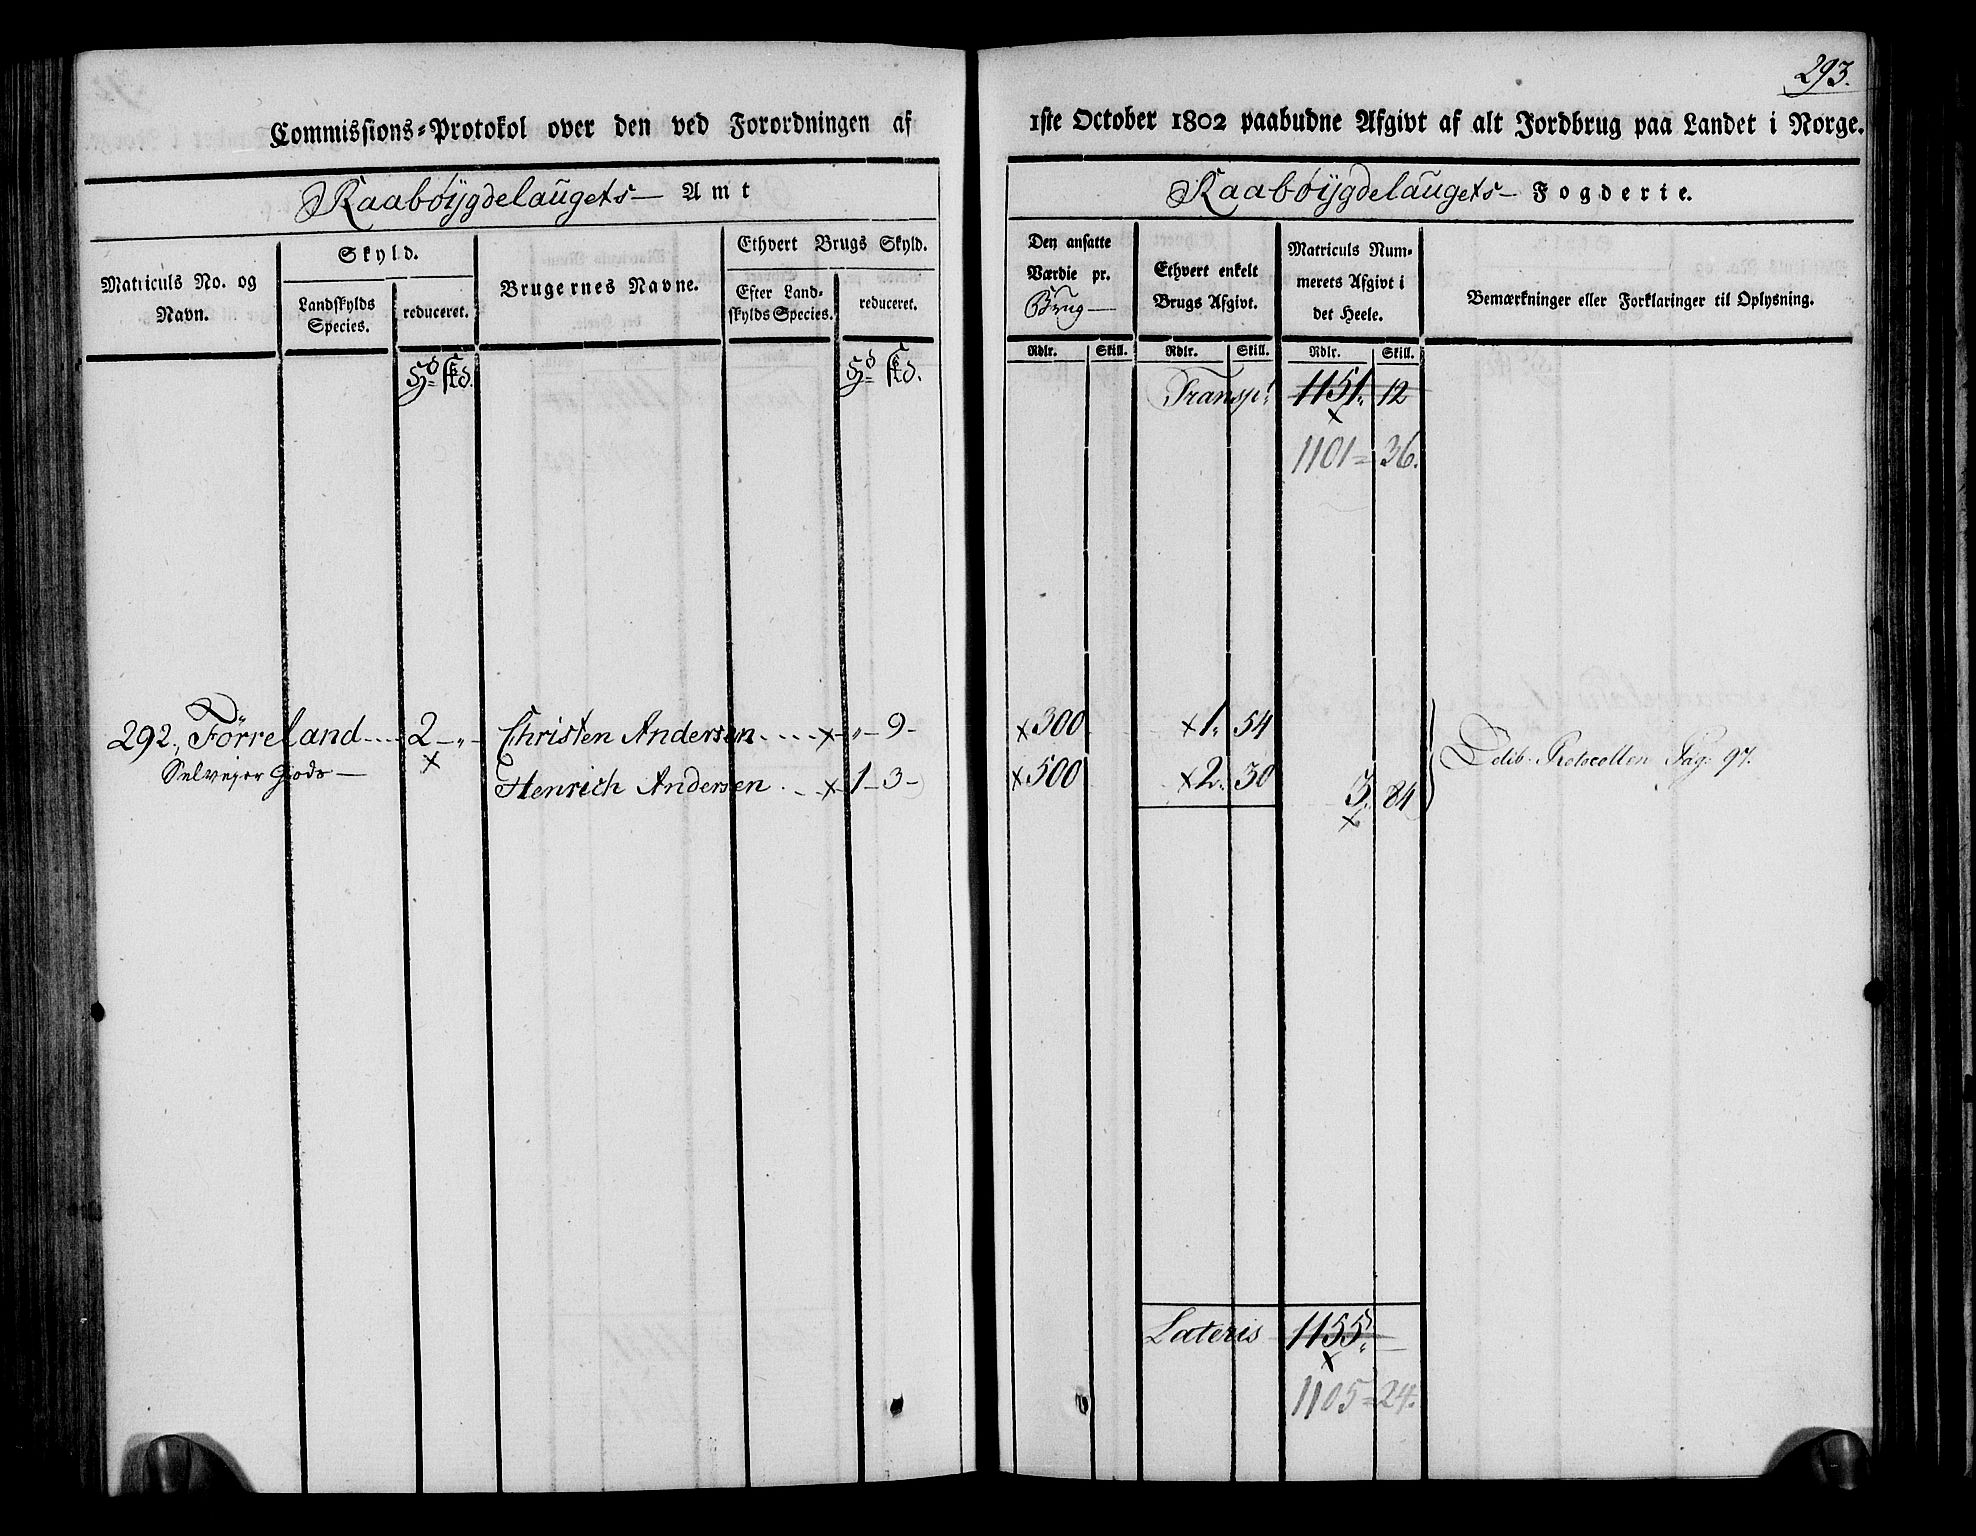 293.
Commissions-Protokol over den ved Forordningen af 1ste October 1802 paabudne Afgivt af alt Jordbrug paa Landet i Norge.
Raabøygdelaugets Amt
Raabøygdelaugets Fogderie.
Matriculs No. og Navn.
Skyld.
Landskylds Species.
reduceret.
Brugernes Navne.
Ethvert Brugs Skyld.
Efter Landskylds Species.
reduceret.
Den ansatte Værdie pr. Brug
Ethvert enkelt Brugs Afgivt.
Matriculs Nummerets Afgivt i det Heele.
Bemærkninger eller Forklaringer til Oplysning.
Rdlr. Skill. Rdlr. Skill. Rdlr. Skill.
Hd skd. Hd skd.
Transpt 1151. 12
x
1101 = 36.
292. Förreland 2 - „ - Christen Andersen x „ - 9 - x 300 x 1. 54
Selveyer Gods x Henrich Andersen x 1 - 3 - x 500 x 2. 30
3. 84
x
Delib. Protocollen Pag. 97.
Lateris 1155. —
x
1105 = 24.